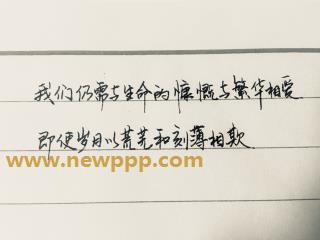 我们仍需与生命的慷慨与繁华相爱
即使岁月以荒芜和刻薄相欺
www.newppp.com